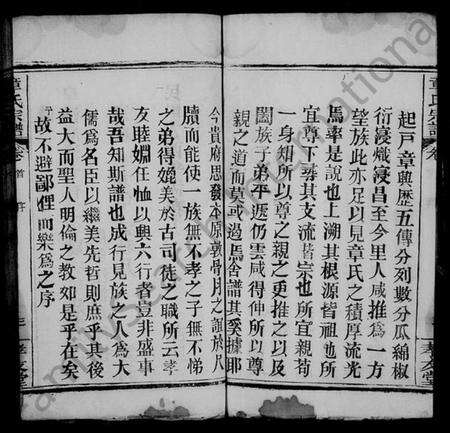 起戸章興歷五傳分列數分瓜綿椒
衍寖熾寖昌至今里人咸推為一方
望族此亦足以見章氏之積厚流光
焉率是說也上溯其根源皆祖也所
宜尊下尋其支流皆宗也所宜親苟
一身知所以尊之親之更推之以及
闔族子弟平遐仍雲咸得伸所以尊
親之道而莫或過焉舍譜其奚據耶
今貴府思發本原敦骨肉之誼於尺
牘而能使一族無不孝之子無不悌
之弟得媲美於古司徒之職所云孝
友睦婣任恤以興六行者豈非盛事
哉吾知斯譜也成行見族之人為大
儒為名臣以繼美先哲則庶乎其後
益大而聖人明倫之教郊是乎在矣
故不避鄙俚而樂為之序
章氏宗譜
卷首
序